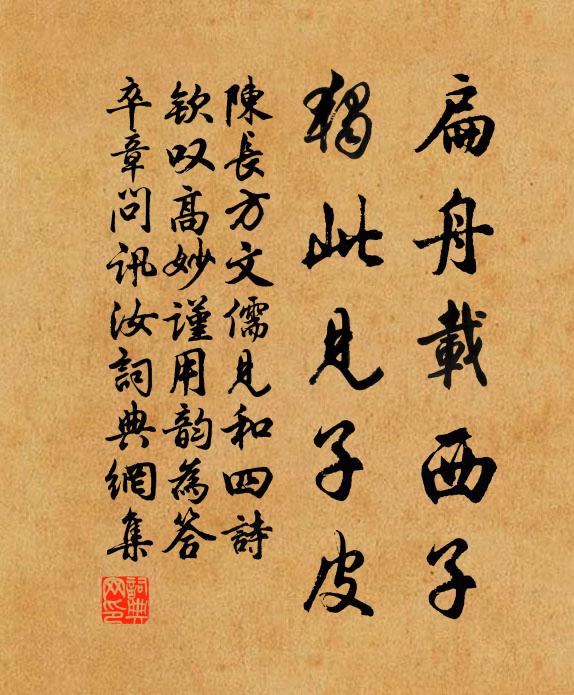 扁舟載西子
獨此見子皮
陳長方文儒見和四詩
欽叹高妙謹用韵為答
卒章問訊汝詞典網集
詞典网印